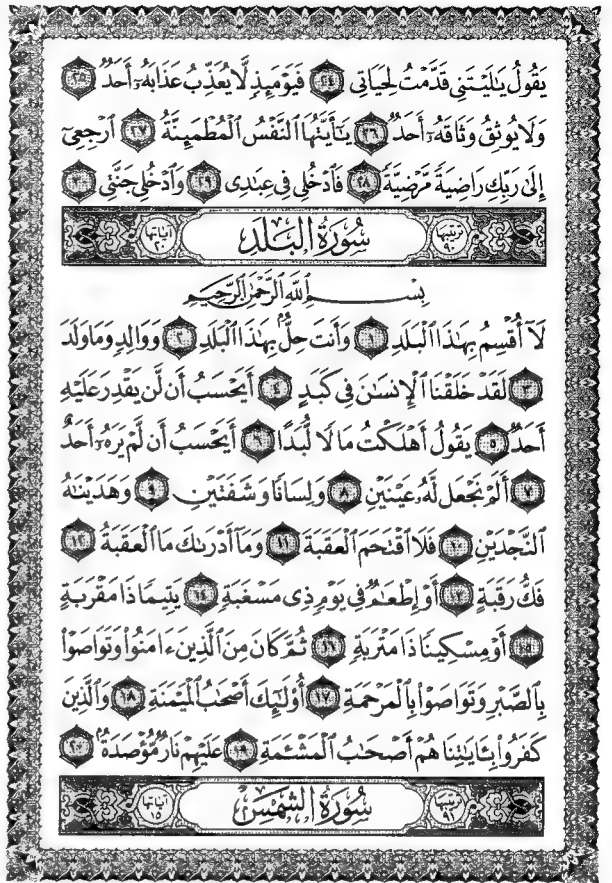 يَقُولُ يَـٰلَيْتَنِى قَدَّمْتُ لِحَيَاتِى ٢٤ فَيَوْمَئِذٍ لَّا يُعَذِّبُ عَذَابَهُۥٓ أَحَدٌ ٢٥
وَلَا يُوثِقُ وَثَاقَهُۥٓ أَحَدٌ ٢٦ يَـٰٓأَيَّتُهَا ٱلنَّفْسُ ٱلْمُطْمَئِنَّةُ ٢٧ ٱرْجِعِىٓ
إِلَىٰ رَبِّكِ رَاضِيَةً مَّرْضِيَّةً ٢٨ فَٱدْخُلِى فِى عِبَـٰدِى ٢٩ وَٱدْخُلِى جَنَّتِى ٣٠
ترتيبها ٩٠ سُورَةُ البَلَدِ آياتها ٢٠
بِسْمِ ٱللَّهِ ٱلرَّحْمَـٰنِ ٱلرَّحِيمِ
لَآ أُقْسِمُ بِهَـٰذَا ٱلْبَلَدِ ١ وَأَنتَ حِلٌّۢ بِهَـٰذَا ٱلْبَلَدِ ٢ وَوَالِدٍ وَمَا وَلَدَ
٣ لَقَدْ خَلَقْنَا ٱلْإِنسَـٰنَ فِى كَبَدٍ ٤ أَيَحْسَبُ أَن لَّن يَقْدِرَ عَلَيْهِ
أَحَدٌ ٥ يَقُولُ أَهْلَكْتُ مَالًا لُّبَدًا ٦ أَيَحْسَبُ أَن لَّمْ يَرَهُۥٓ أَحَدٌ
٧ أَلَمْ نَجْعَل لَّهُۥ عَيْنَيْنِ ٨ وَلِسَانًا وَشَفَتَيْنِ ٩ وَهَدَيْنَـٰهُ
ٱلنَّجْدَيْنِ ١٠ فَلَا ٱقْتَحَمَ ٱلْعَقَبَةَ ١١ وَمَآ أَدْرَىٰكَ مَا ٱلْعَقَبَةُ ١٢
فَكُّ رَقَبَةٍ ١٣ أَوْ إِطْعَـٰمٌ فِى يَوْمٍ ذِى مَسْغَبَةٍ ١٤ يَتِيمًا ذَا مَقْرَبَةٍ
١٥ أَوْ مِسْكِينًا ذَا مَتْرَبَةٍ ١٦ ثُمَّ كَانَ مِنَ ٱلَّذِينَ ءَامَنُوا۟ وَتَوَاصَوْا۟
بِٱلصَّبْرِ وَتَوَاصَوْا۟ بِٱلْمَرْحَمَةِ ١٧ أُو۟لَـٰٓئِكَ أَصْحَـٰبُ ٱلْمَيْمَنَةِ ١٨ وَٱلَّذِينَ
كَفَرُوا۟ بِـَٔايَـٰتِنَا هُمْ أَصْحَـٰبُ ٱلْمَشْـَٔمَةِ ١٩ عَلَيْهِمْ نَارٌ مُّؤْصَدَةٌۢ ٢٠
ترتيبها ٩١ سُورَةُ الشَّمْسِ آياتها ١٥